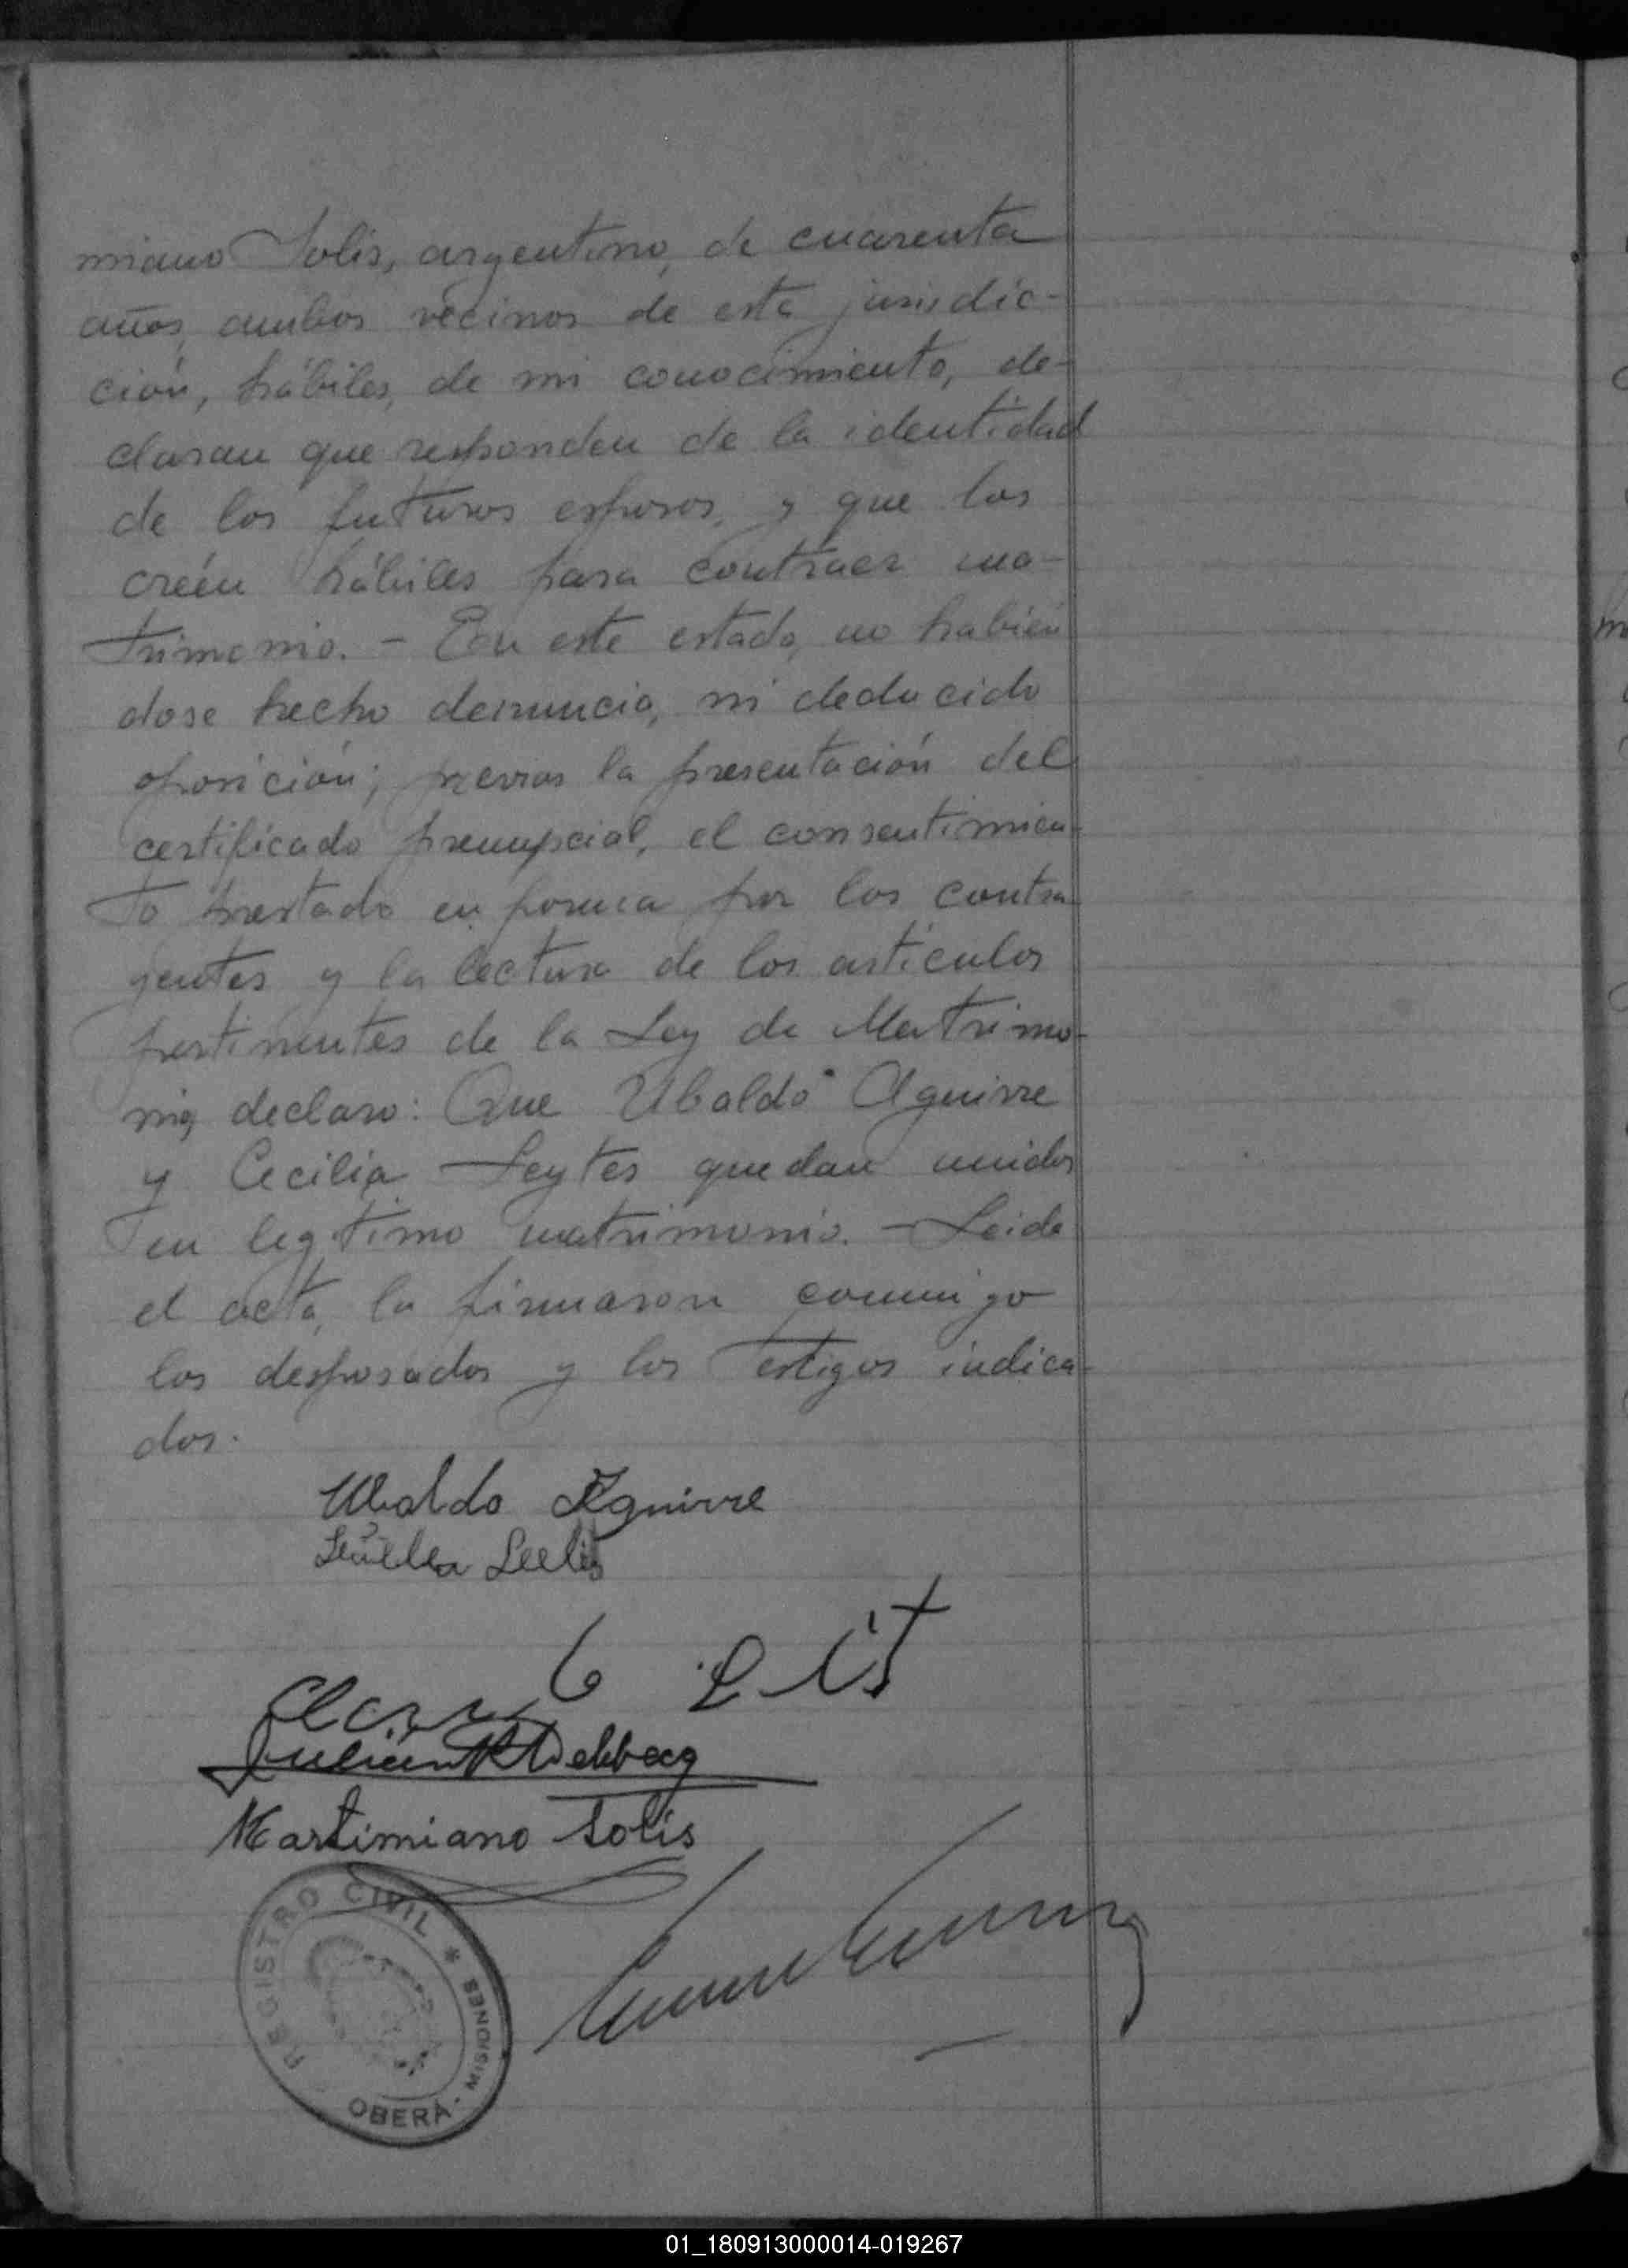 miano Solis, argentino, de cuarenta
años, ambos vecinos de esta jurisdic-
ción, hábiles, de mi conocimiento, de-
claran que responden de la identidad
de los futuros esposos, y que los
creén hábiles para contraer ma-
trimonio. - En este estado, no habién
dose hecho denuncia, ni deducido
oposición; previos la presentación del
certificado prenupcial, el consentimien-
to prestado en forma por los contra-
yentes y la lectura de los artículos
pertinentes de la Ley de Matrimo-
nio, declaro: Que Ubaldo Aguirre
y Cecilia Leytes quedan unidos
en legítimo matrimonio. - Leida
el acta, la firmaron conmigo
los desposados y los testigos indica-
dos.
Ubaldo Aguirre
Martimiano Solis
REGISTRO CIVIL * OBERÁ - MISIONES
01_180913000014-019267